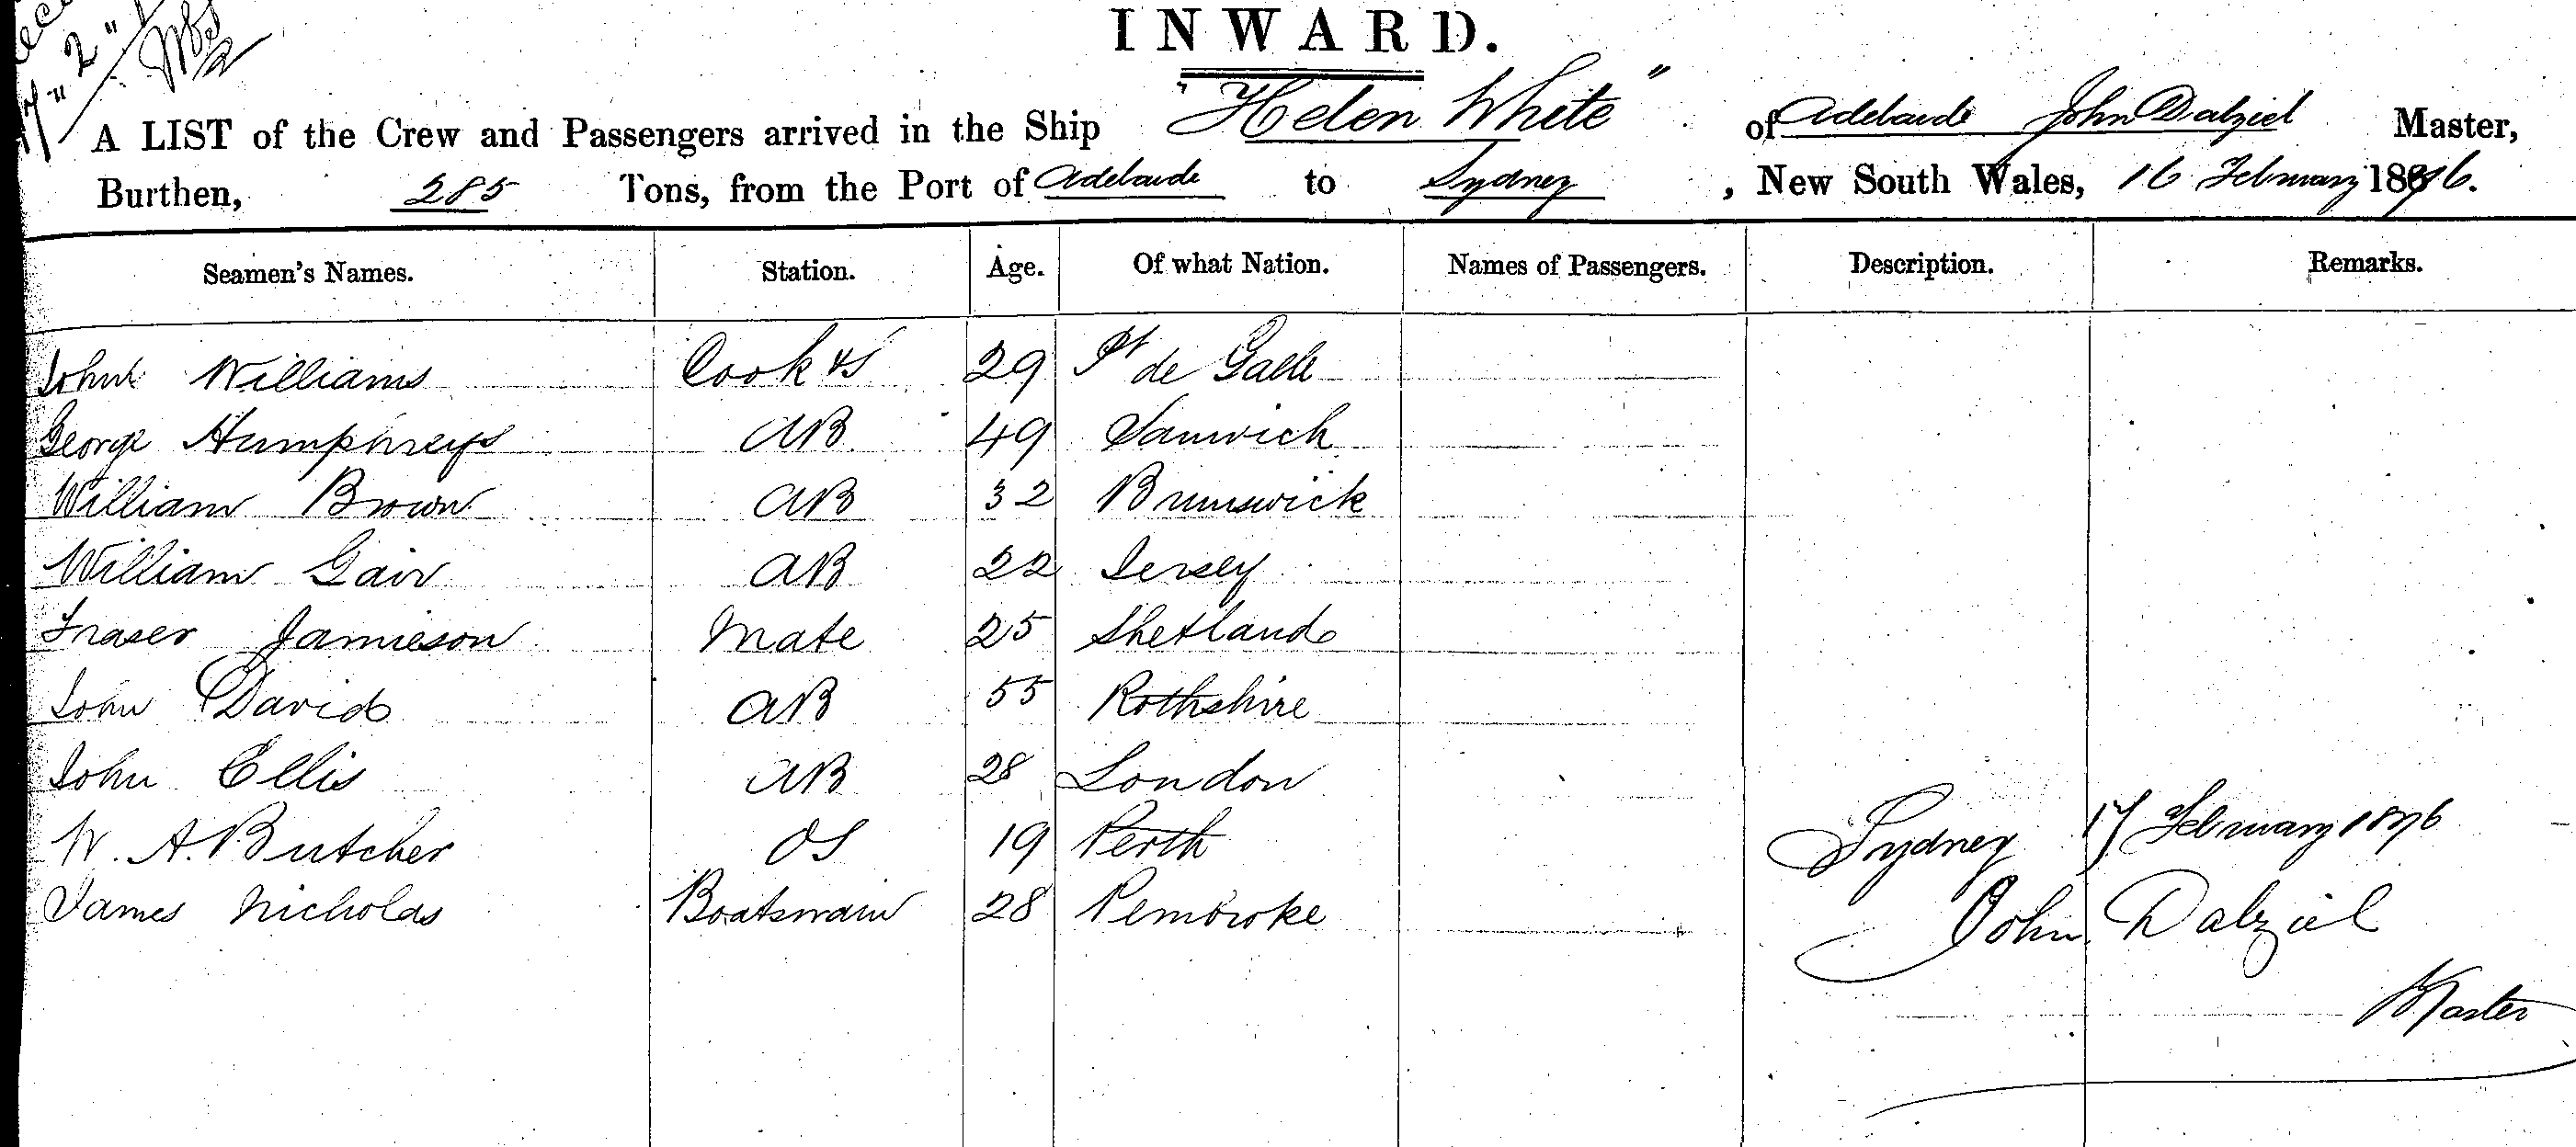 17" 2"
INWARD.
A LIST of the Crew and Passengers arrived in the Ship "Helen White" of Adelaide John Dalziel Master,
Burthen, 285 Tons, from the Port of Adelaide to Sydney, New South Wales, 16 February 1876.
Seamen's Names. Station. Age. Of what Nation. Names of Passengers. Description. Remarks.
John Williams Cook &S 29 Pt de Galle
George Humphreys AB 49 Sanwich
William Brown AB 32 Brunswick
William Gair AB 22 Jersey
Fraser Jamieson Mate 25 Shetland
John David AB 55 Rothshire
John Ellis AB 28 London
W. A. Butcher OS 19 Perth
James Nicholas Boatswain 28 Pembroke
Sydney 17 February 1876
John Dalziel
Master